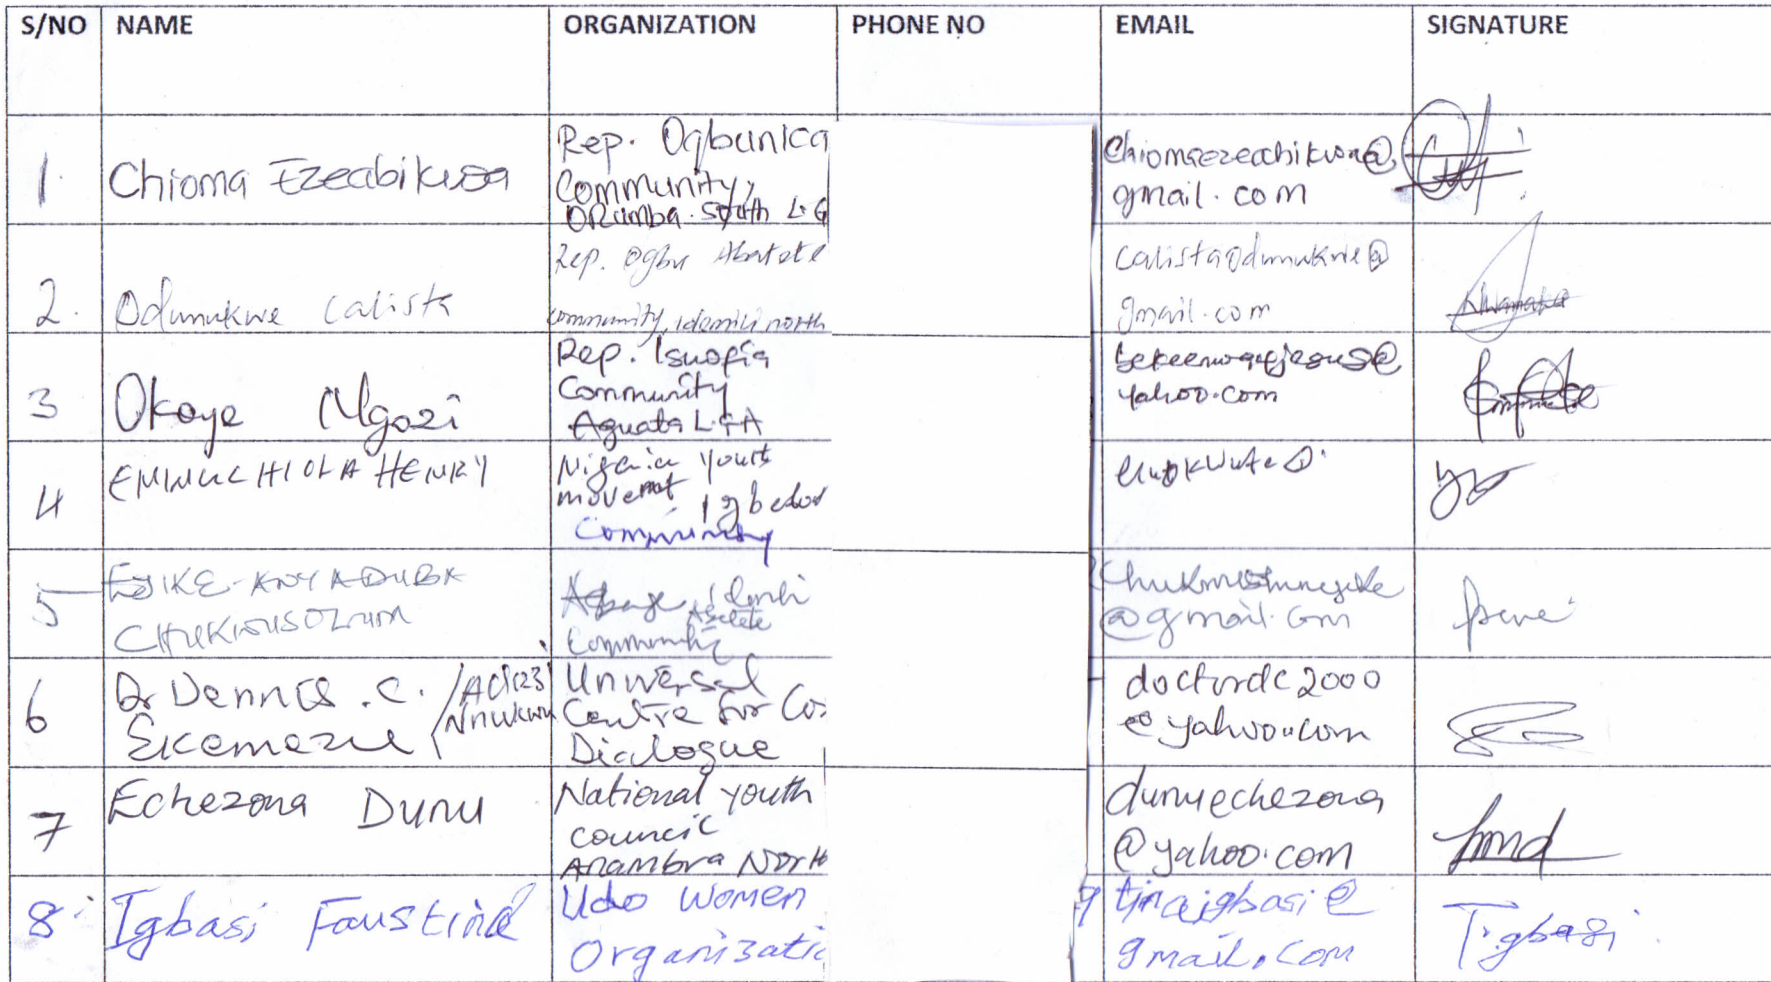 S/NO NAME ORGANIZATION PHONE NO EMAIL SIGNATURE
1. Chioma Ezeabikwa
Rep. Ogbunka
Community,
ORumba South L.G
chiomaezeabikwa@
gmail.com
2. Odumukwe Calista
Rep. Ogbu Abatete
community, idemili north
calistaodumukwe@
gmail.com
3 Okoye Ngozi
Rep. Isuofia
Community
Aguata L.G.A
yahoo.com
4 HENRY
Nigeria Youth
movement
Community
5 EJIKE-ANYADUBA
CHUKWUSOLUM
Community
@gmail.com
6 Dr Dennis .C.
Ekemezie
Universal
Centre for
Dialogue
doctordc2000
@yahoo.com
7 Echezona Dunu
National youth
council
Anambra North
dunuechezona
@yahoo.com
8 Igbasi Faustina
Udo Women
Organizatio
tinaigbasi@
gmail.com
T.gbasi